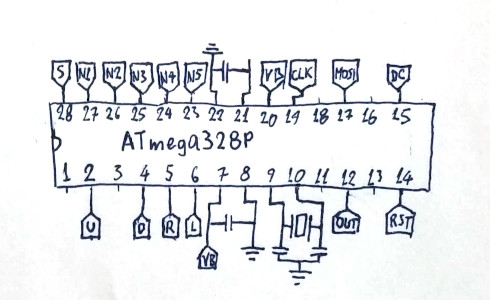 S N1 N2 N3 N4 N5 VB CLK MOSI DC
28 27 26 25 24 23 22 21 20 19 18 17 16 15
ATmega328P
1 2 3 4 5 6 7 8 9 10 11 12 13 14
U D R L OUT RST
VB